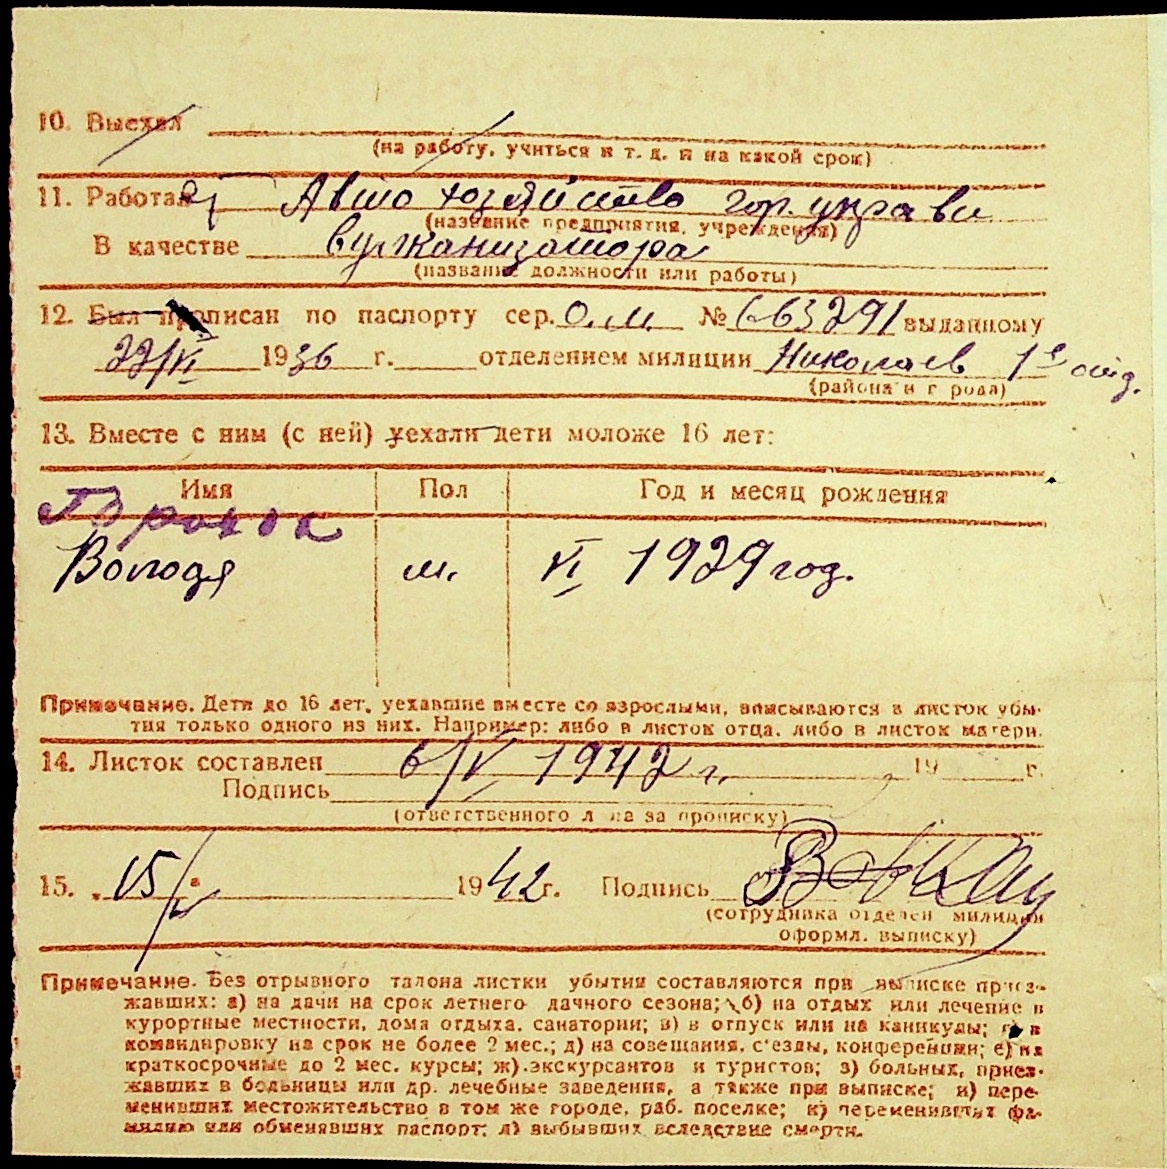 10. Выехал
(на работу, учиться и т. д. и на какой срок)
11. Работает Авто хозяйство гор. управы
(название предприятия, учреждения)
В качестве вулканизатора
(название должности или работы)
12. Был прописан по паспорту сер. О.М. № 663291 выданному
22/VI 1936 г. отделением милиции Николаев 1е отд.
(района и города)
13. Вместе с ним (с ней) уехали дети моложе 16 лет:
Имя Пол Год и месяц рождения
Володя м. VI 1929 год.
Примечание. Дети до 16 лет, уехавшие вместе со взрослыми, вписываются в листок убы-
тия только одного из них. Например: либо в листок отца, либо в листок матери.
14. Листок составлен 6/V 1942 г. 19 г.
Подпись
(ответственного лица за прописку)
15. „15/V" 1942 г. Подпись
(сотрудника отделен. милиции
оформл. выписку)
Примечание. Без отрывного талона листки убытия составляются при выписке приез-
жавших: а) на дачи на срок летнего дачного сезона; б) на отдых или лечение в
курортные местности, дома отдыха, санатории; в) в отпуск или на каникулы; г) в
командировку на срок не более 2 мес.; д) на совещания, с'езды, конференции; е) на
краткосрочные до 2 мес. курсы; ж) экскурсантов и туристов; з) больных, приез-
жавших в больницы или др. лечебные заведения, а также при выписке; и) пере-
менивших местожительство в том же городе, раб. поселке; к) переменивших фа-
милию или обменявших паспорт; л) выбывших вследствие смерти.